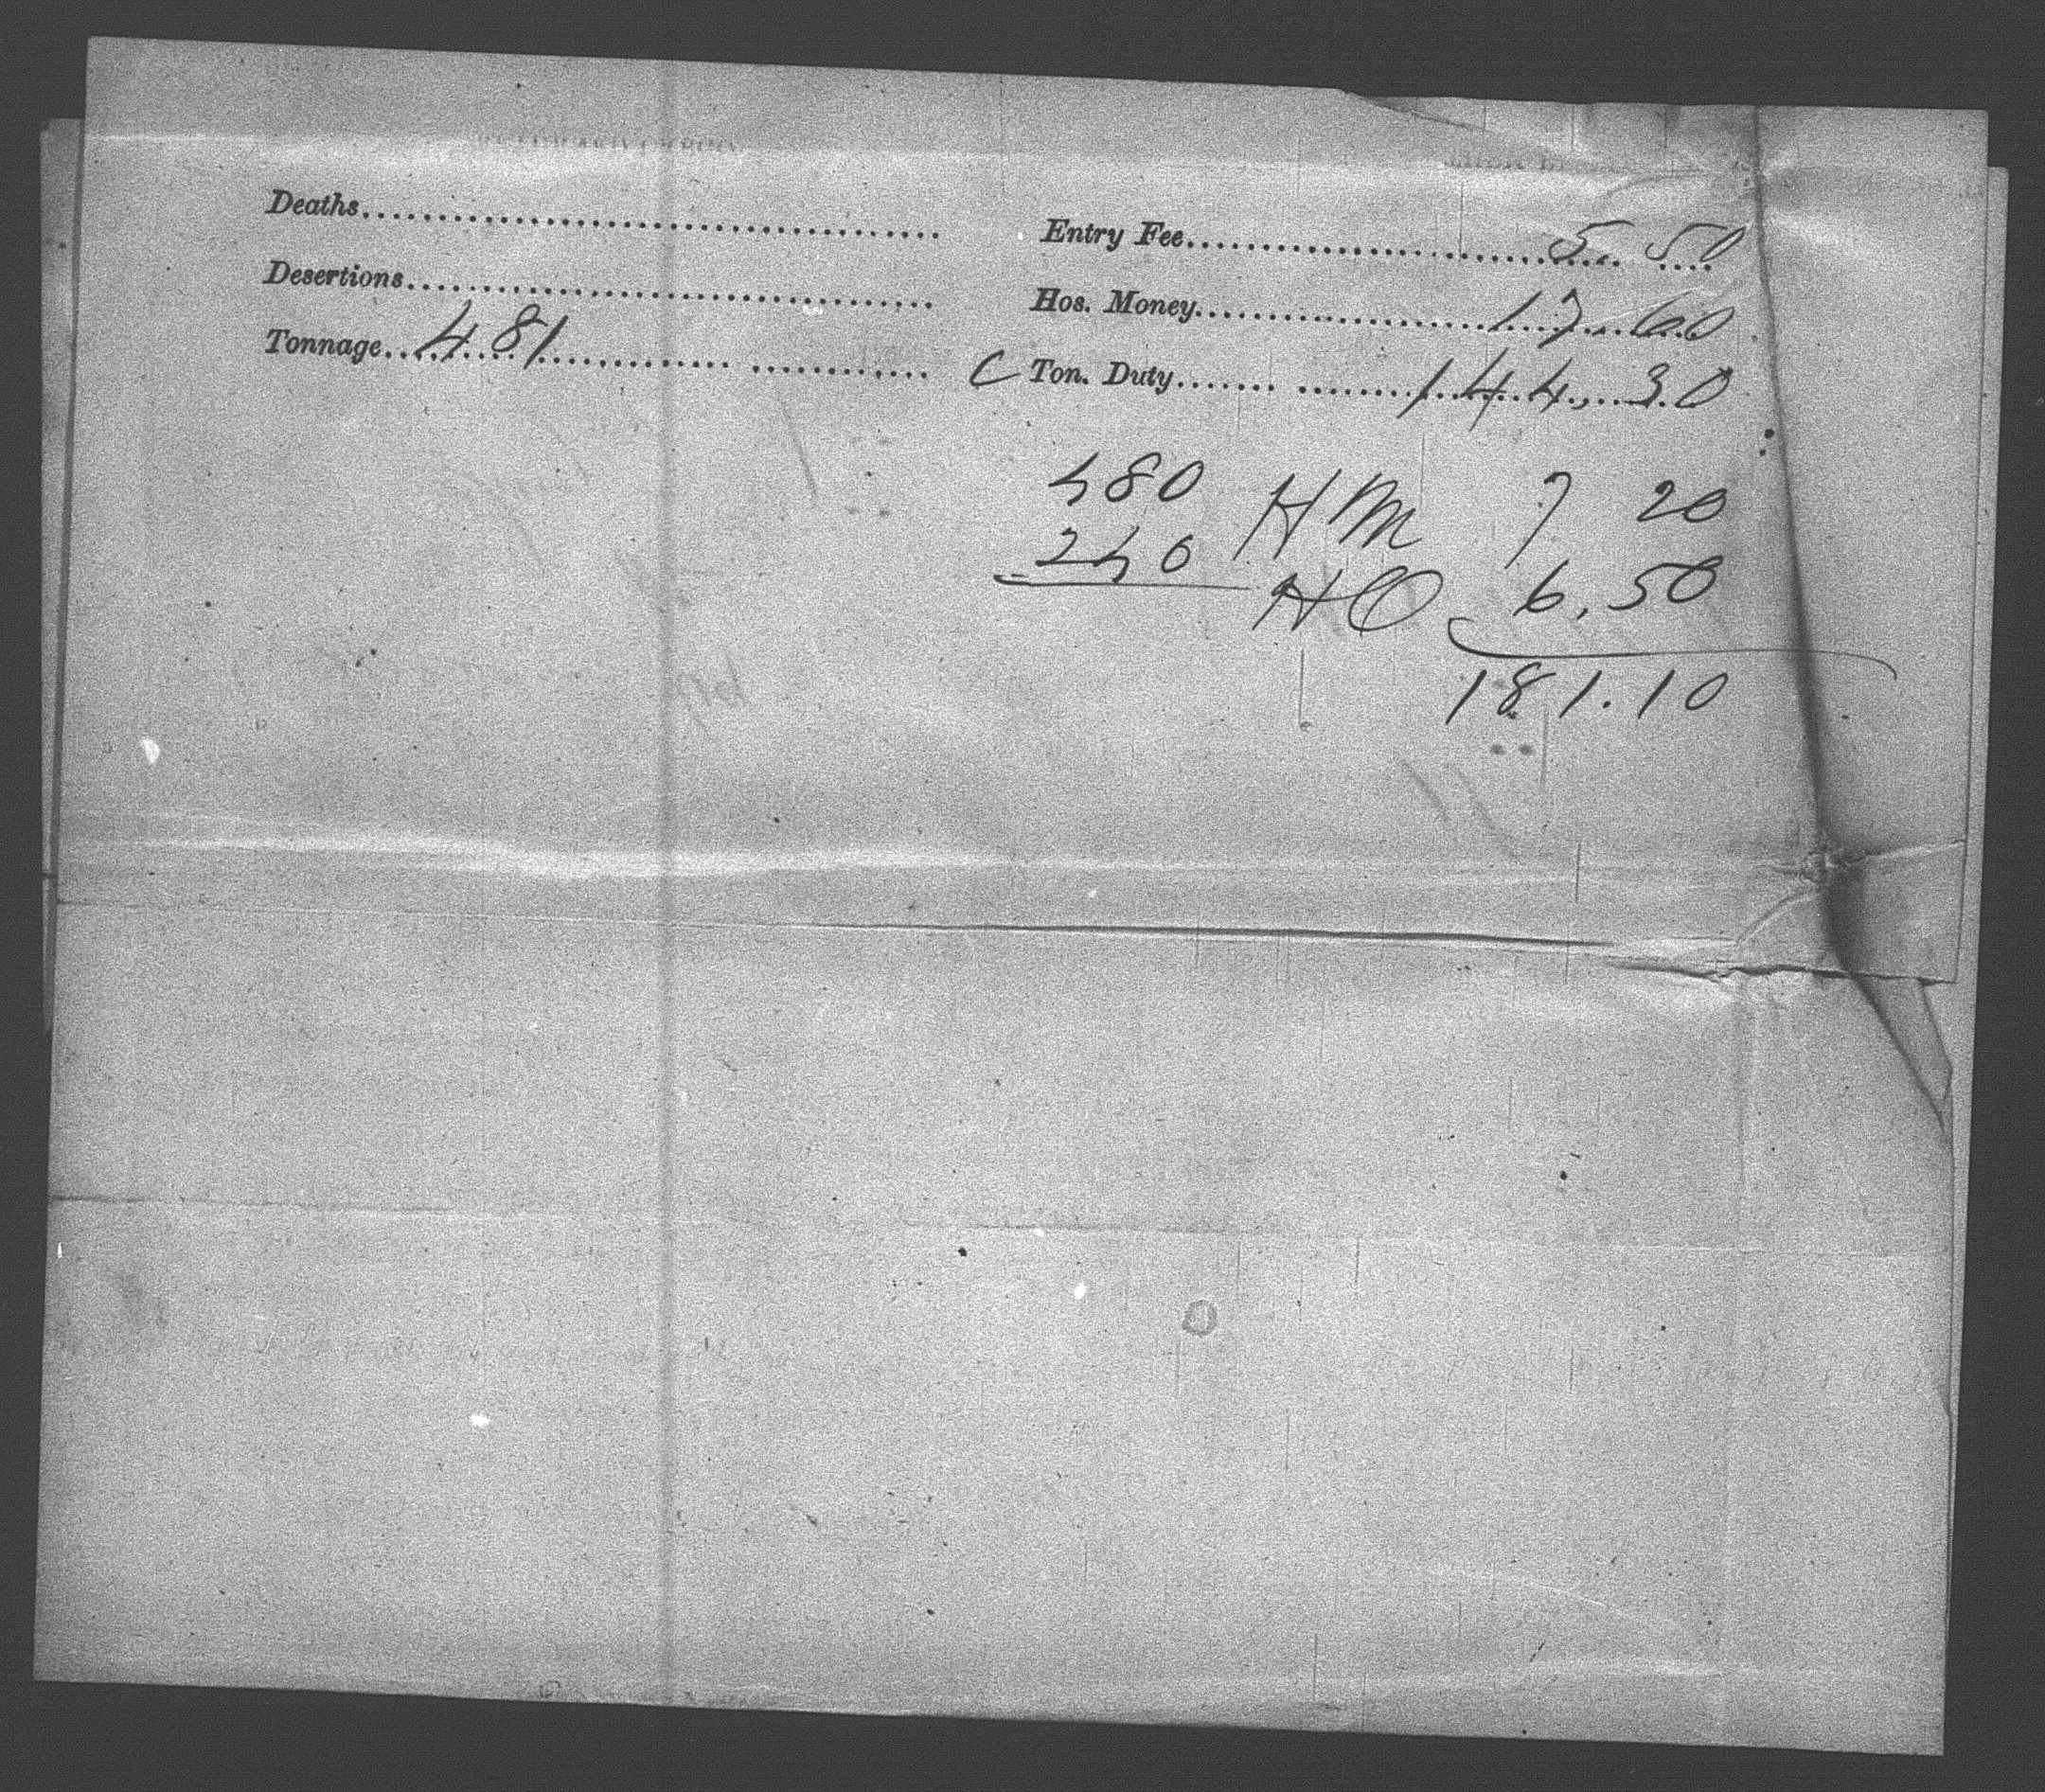 Deaths
Desertions
Tonnage 481
Entry Fee 5.50
Hos. Money 17.60
C Ton. Duty 144.30
480 HM 7 20
240 HO 6,50
181.10